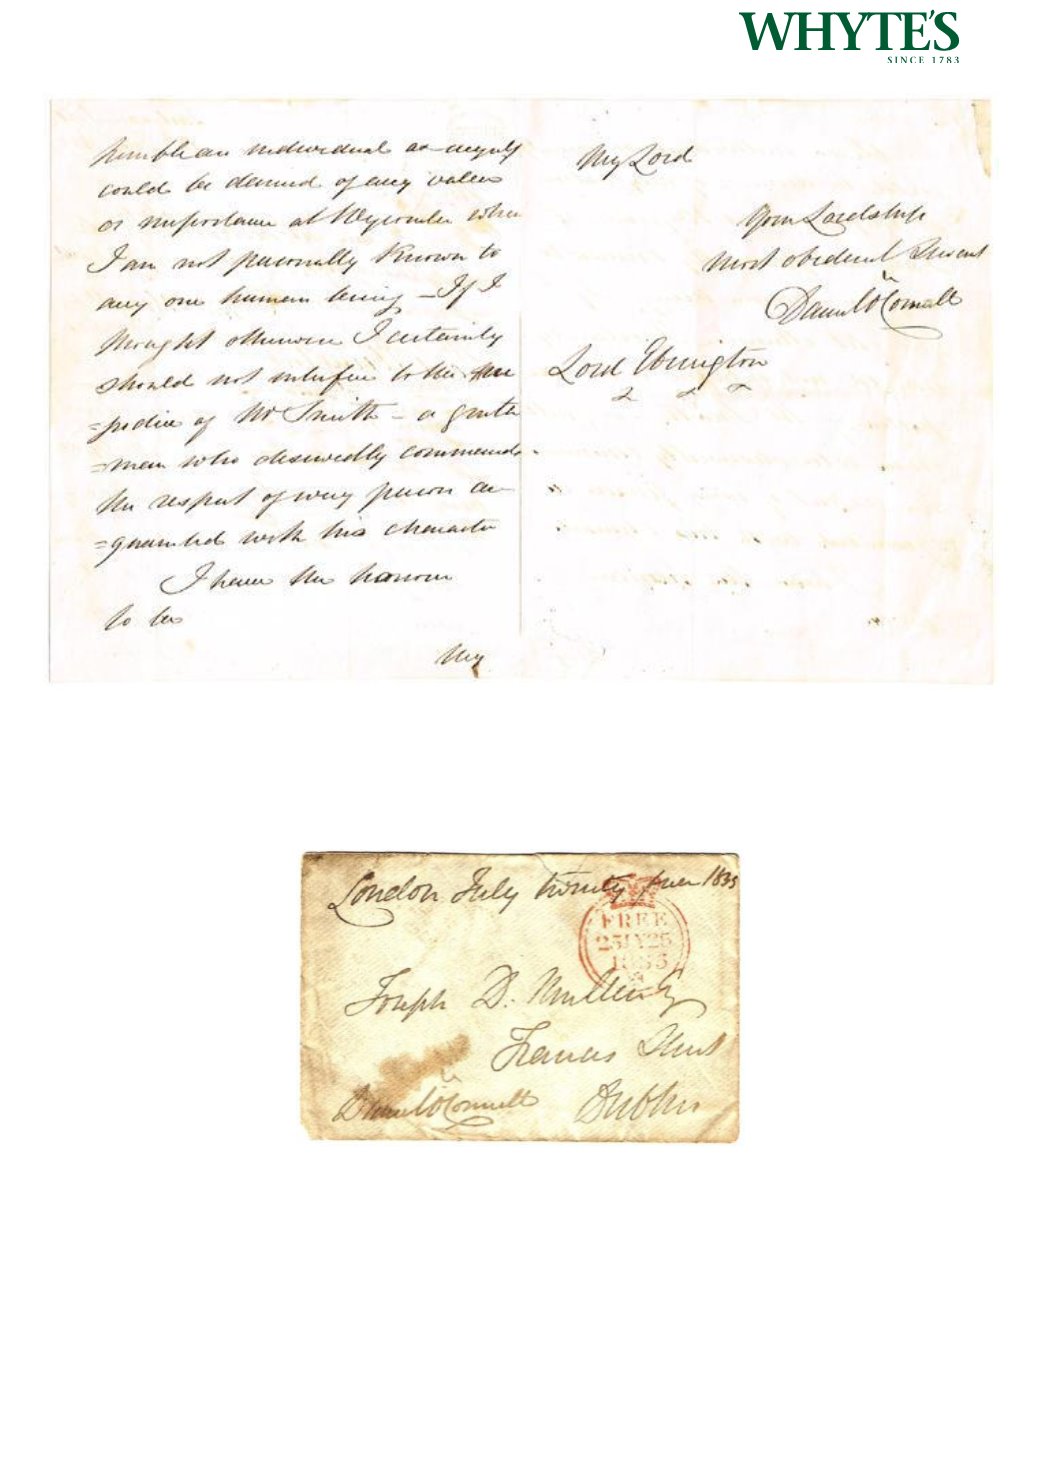 WHYTE'S
SINCE 1783
humble an individual as myself
could be deemed of any value
or importance at Wycombe when
I am not personally known to
any one human being – If I
thought otherwise I certainly
should not interfere to the pre
=judice of Mr Smith – a gentle
=man who deservedly commands
the respect of every person ac
=quainted with his character
I have the honour
to be
My
My Lord
Your Lordship's
most obedient Servant
Daniel O'Connell
Lord Ebrington
London July twenty five 1835
FREE
25 JY 25
1835
Joseph D. Mullen Esq
Francis Street
Dublin
Daniel O'Connell